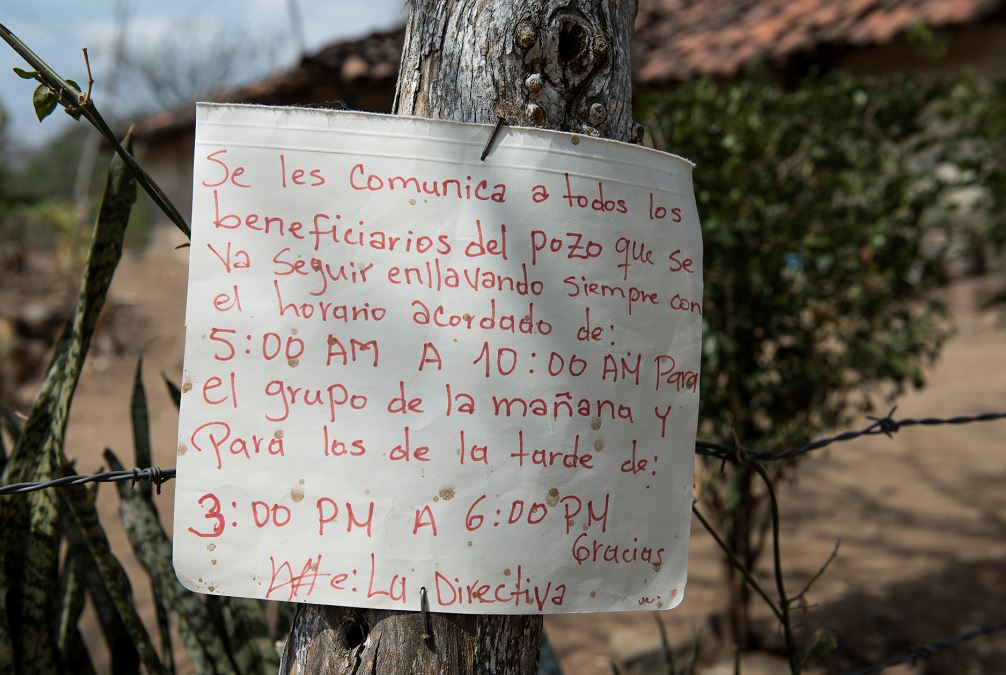 Se les comunica a todos los
beneficiarios del pozo que se
va seguir enllavando siempre con
el horario acordado de:
5:00 AM A 10:00 AM Para
el grupo de la mañana y
Para los de la tarde de:
3:00 PM A 6:00 PM
Gracias
e: La Directiva